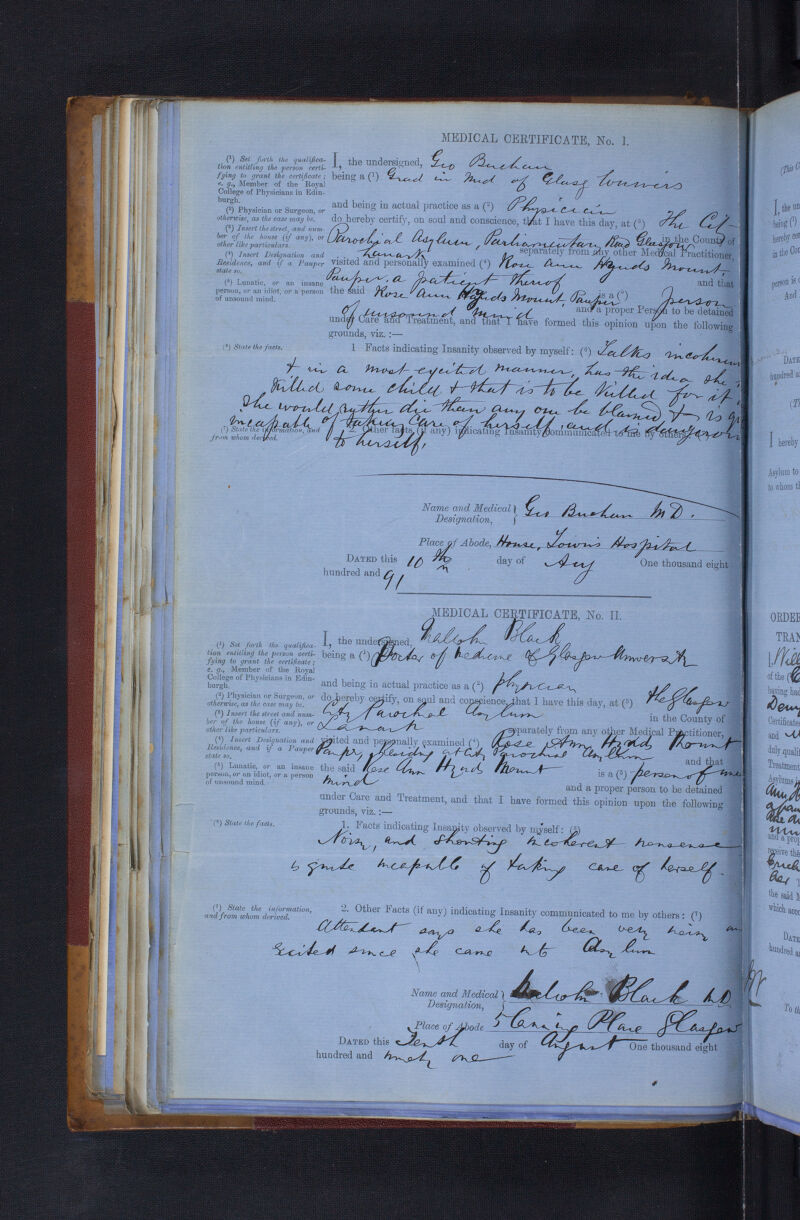 MEDICAL CERTIFICATE, No. I.
(¹) Set forth the qualification entitling the person certifying to grant the certificate; e. g., Member of the Royal College of Physicians in Edinburgh.
(²) Physician or Surgeon, or otherwise, as the case may be.
(³) Insert the street, and number of the house (if any), or other like particulars.
(⁴) Insert Designation and Residence, and if a Pauper state so.
(⁵) Lunatic, or an insane person, or an idiot, or a person of unsound mind.
I, the undersigned, Geo Buchan
being a (¹) Grad in Med of Glasg
and being in actual practice as a (²) Physician
do hereby certify, on soul and conscience, that I have this day, at (³) The City
Parochial Asylum, Parliamentary Road Glasgow in the County of
Lanark separately from any other Medical Practitioner,
visited and personally examined (⁴) Rose Ann Hynds Mount,
Pauper, a patient thereof and that
the said Rose Ann Hynds Mount, Pauper is a (⁵) person
of unsound mind and a proper Person to be detained
under Care and Treatment, and that I have formed this opinion upon the following
grounds, viz.:—
(⁶) State the facts.
1 Facts indicating Insanity observed by myself: (⁶) Talks
& in a most excited manner, has the idea she
killed some child & that is to be killed for it
She would rather die than any one be blamed & is
incapable of taking care of herself, and is dangerous
(⁷) State the information, and from whom derived.
2. Other facts (if any) indicating Insanity communicated to me by others
to herself.
Name and Medical Designation, Geo Buchan MD.
Place of Abode, House, Town's Hospital
DATED this 10th day of Aug One thousand eight
hundred and 91
MEDICAL CERTIFICATE, No. II.
(¹) Set forth the qualification entitling the person certifying to grant the certificate; e. g., Member of the Royal College of Physicians in Edinburgh.
(²) Physician or Surgeon, or otherwise, as the case may be.
(³) Insert the street and number of the house (if any), or other like particulars.
(⁴) Insert Designation and Residence, and if a Pauper state so.
(⁵) Lunatic, or an insane person, or an idiot, or a person of unsound mind.
I, the undersigned, Malcolm Black
being a (¹) Doctor of Medicine of Glasgow University
and being in actual practice as a (²) physician
do hereby certify, on soul and conscience, that I have this day, at (³) the Glasgow
City Parochial Asylum in the County of
Lanark separately from any other Medical Practitioner,
visited and personally examined (⁴) Rose Ann Hynd Mount
Pauper, residing at City Parochial Asylum and that
the said Rose Ann Hynd Mount is a (⁵) person of
mind and a proper person to be detained
under Care and Treatment, and that I have formed this opinion upon the following
grounds, viz.:—
(⁶) State the facts.
1. Facts indicating Insanity observed by myself: (⁶)
Noisy, and shouting incoherent nonsense
is quite incapable of taking care of herself.
(⁷) State the information, and from whom derived.
2. Other Facts (if any) indicating Insanity communicated to me by others: (⁷)
Attendant says she has been very noisy
excited since she came into Asylum
Name and Medical Designation, Malcolm Black MD
Place of Abode 5 Canning Place Glasgow
DATED this Tenth day of August One thousand eight
hundred and ninety one